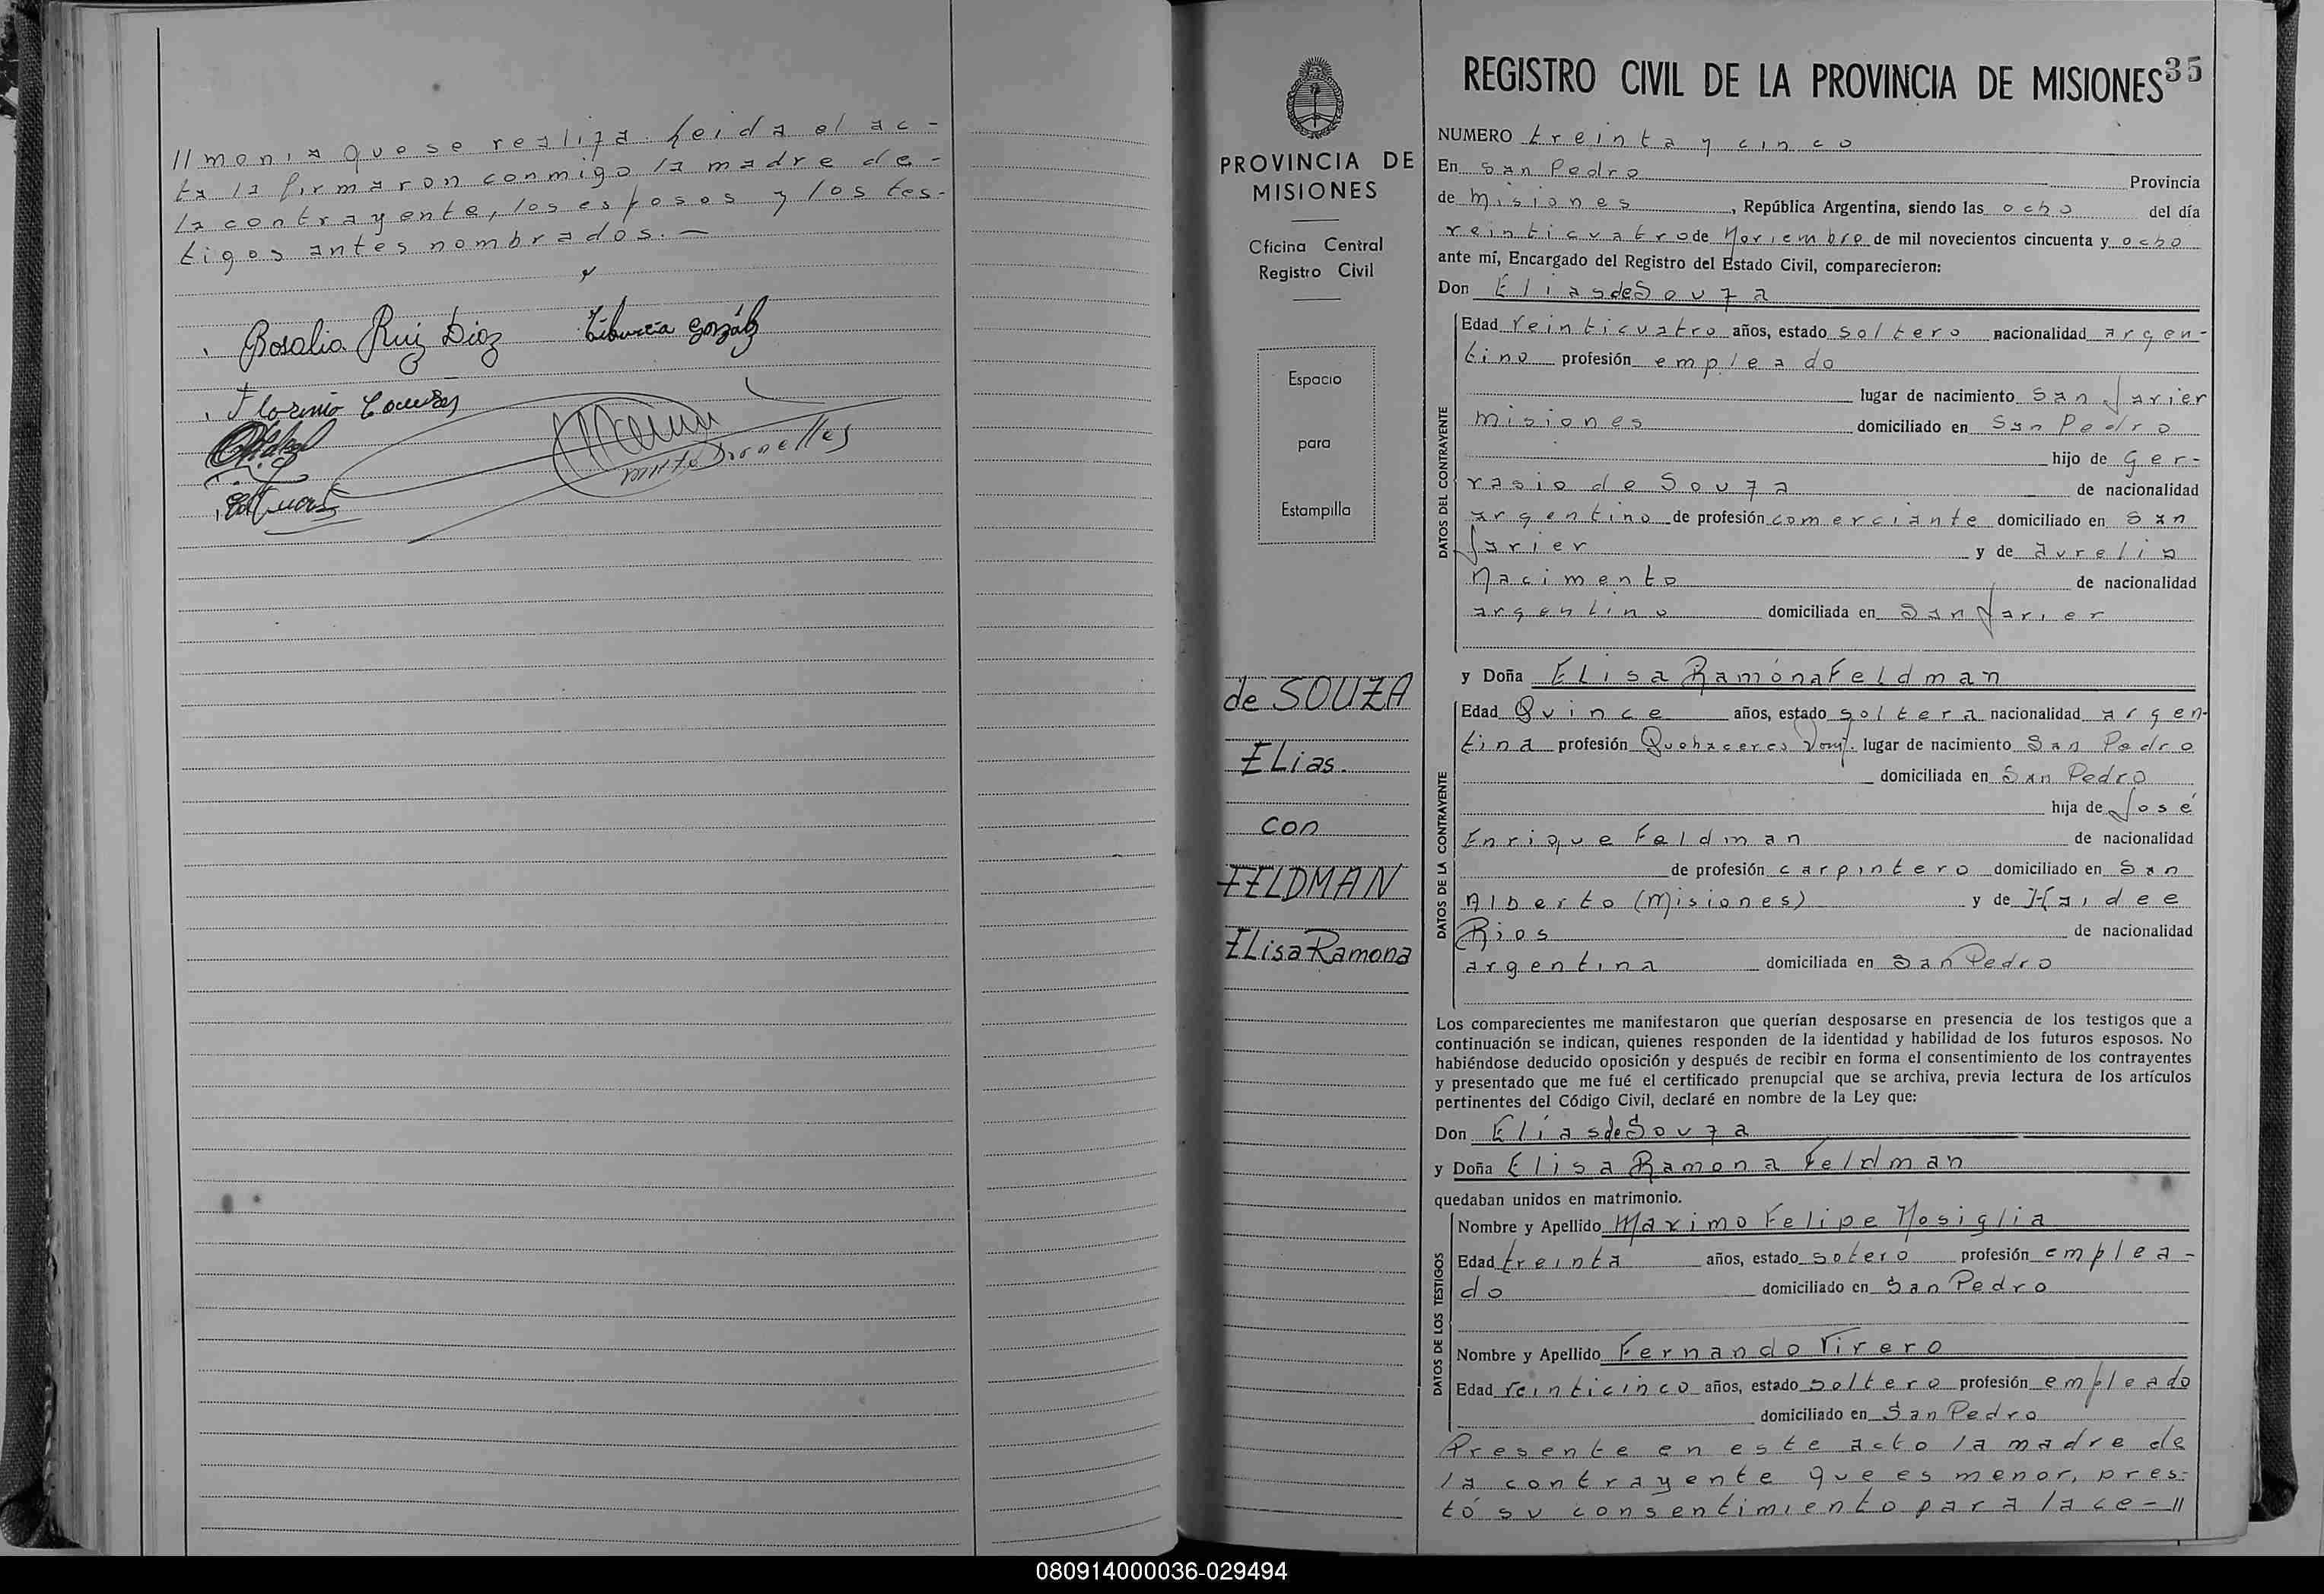 //monia que se realiza. Leida el ac-
ta la firmaron conmigo la madre de-
la contrayente, los esposos y los tes-
tigos antes nombrados.—
Rosalia Ruiz Diaz Tiburcia González
Florinio
REGISTRO CIVIL DE LA PROVINCIA DE MISIONES 35
PROVINCIA DE
MISIONES
Oficina Central
Registro Civil
Espacio
para
Estampilla
de SOUZA
ELias.
con
FELDMAN
ELisa Ramona
NUMERO treinta y cinco
En San Pedro Provincia
de Misiones, República Argentina, siendo las ocho del día
veinticuatro de Noviembre de mil novecientos cincuenta y ocho
ante mí, Encargado del Registro del Estado Civil, comparecieron:
Don Elias de Souza
DATOS DEL CONTRAYENTE
Edad veinticuatro años, estado soltero nacionalidad argen-
tino profesión empleado
lugar de nacimiento San Javier
Misiones domiciliado en San Pedro
hijo de Ger-
vasio de Souza de nacionalidad
argentino de profesión comerciante domiciliado en San
Javier y de Aurelia
Nacimento de nacionalidad
argentino domiciliada en San Javier
y Doña ELisa Ramona FeLdman
DATOS DE LA CONTRAYENTE
Edad Quince años, estado soltera nacionalidad argen-
tina profesión Quehaceres Dom. lugar de nacimiento San Pedro
domiciliada en San Pedro
hija de José
Enrique Feldman de nacionalidad
de profesión carpintero domiciliado en San
Alberto (Misiones) y de Haidee
Rios de nacionalidad
argentina domiciliada en San Pedro
Los comparecientes me manifestaron que querían desposarse en presencia de los testigos que a
continuación se indican, quienes responden de la identidad y habilidad de los futuros esposos. No
habiéndose deducido oposición y después de recibir en forma el consentimiento de los contrayentes
y presentado que me fué el certificado prenupcial que se archiva, previa lectura de los artículos
pertinentes del Código Civil, declaré en nombre de la Ley que:
Don Elias de Souza
y Doña Elisa Ramona Feldman
quedaban unidos en matrimonio.
DATOS DE LOS TESTIGOS
Nombre y Apellido Maximo Felipe Nosiglia
Edad treinta años, estado sotero profesión emplea-
do domiciliado en San Pedro
Nombre y Apellido Fernando Vivero
Edad veinticinco años, estado soltero profesión empleado
domiciliado en San Pedro
Presente en este acto la madre de
la contrayente que es menor, pres-
tó su consentimiento para la ce-//
080914000036-029494